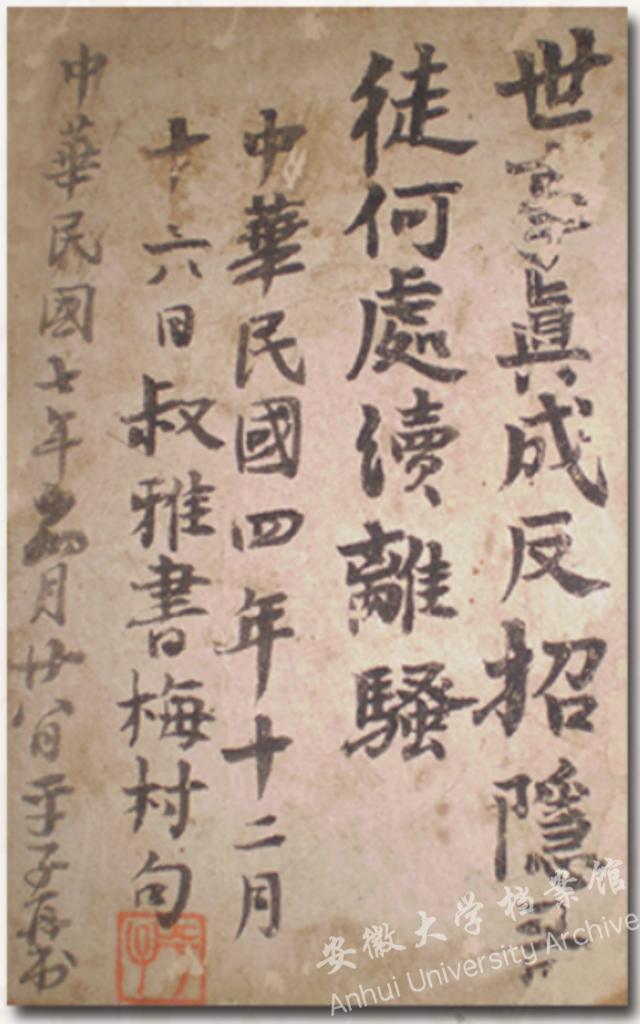 世眞成反招隱
徒何處續離騷
中華民國四年十二月
十六日叔雅書梅村句
中華民國七年月廿八日子
安徽大学档案馆
Anhui University Archive